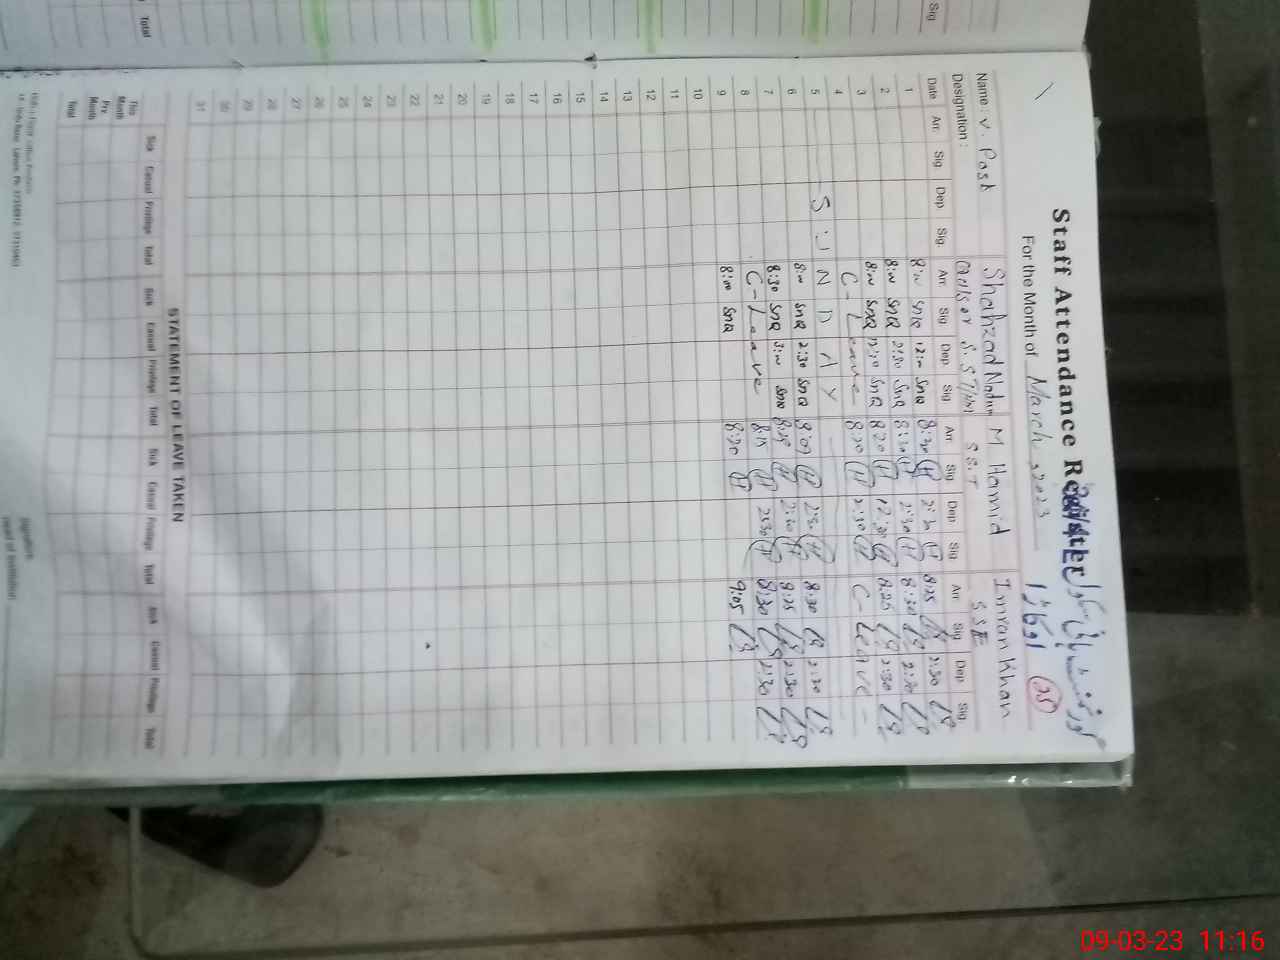 Staff Attendance Register
For the Month of March, 2023 (25)
Name: V. Post Shahzad Nadeem M Hamid Imran Khan
Designation: S.S.T SSE
Date Arr. Sig Dep Sig. Arr Sig Dep Sig Arr Sig Dep Sig Arr Sig Dep Sig.
1 8:00 SnQ 12:00 SnQ 8:20 H 2:30 H 8:25 2:30
2 8:00 SnQ 2:30 SnQ 8:30 H 2:30 H 8:30 2:30
3 8:00 SnQ 12:30 SnQ 8:20 H 12:30 H 8:25 2:30
4 C-Leave 8:20 H 2:30 H C-Leave
5 SUNDAY
6 8:00 SnQ 2:30 SnQ 8:07 H 2:30 H 8:30 2:30
7 8:30 SnQ 3:00 SnQ H 2:30 H 8:25 2:30
8 C-Leave 8:15 H 2:30 H 8:30 2:30
9 8:00 SnQ 8:20 H 9:05
10
11
12
13
14
15
16
17
18
19
20
21
22
23
24
25
26
27
28
29
30
31
STATEMENT OF LEAVE TAKEN
Sick Casual Privilege Total Sick Casual Privilege Total Sick Casual Privilege Total Sick Casual Privilege Total
This Month
Prv. Month
Total
Signature
Head of Institution
Total Sig
09-03-23 11:16